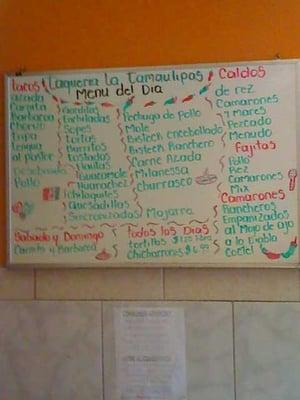 Tacos
Taqueria La Tamaulipas
Menu del Dia
Azada
Carnita
Barbacoa
Chorizo
Tripa
Lengua
al pastor
Deshebrada
Pollo
Gorditas
Enchiladas
Sopes
Tortas
Burritos
Tostadas
Flautas
Guacamole
Huarachez
Chilaquiles
Quesadillas
Sincronizadas
Pechuga de Pollo
Mole
Bisteck encebollado
Bisteck Ranchero
Carne Azada
Milanessa
churrasco
Mojarra
Caldos
de rez
Camarones
7 Mares
Pezcado
Menudo
Fajitas
Pollo
Rez
Camarones
Mix
Camarones
Rancheros
Empanizados
al Mojo de ajo
a la Diabla
Coctel
Sabado y Domingo
Carnita y Barbacoa
Todos los Dias
tortillas
Chicharron